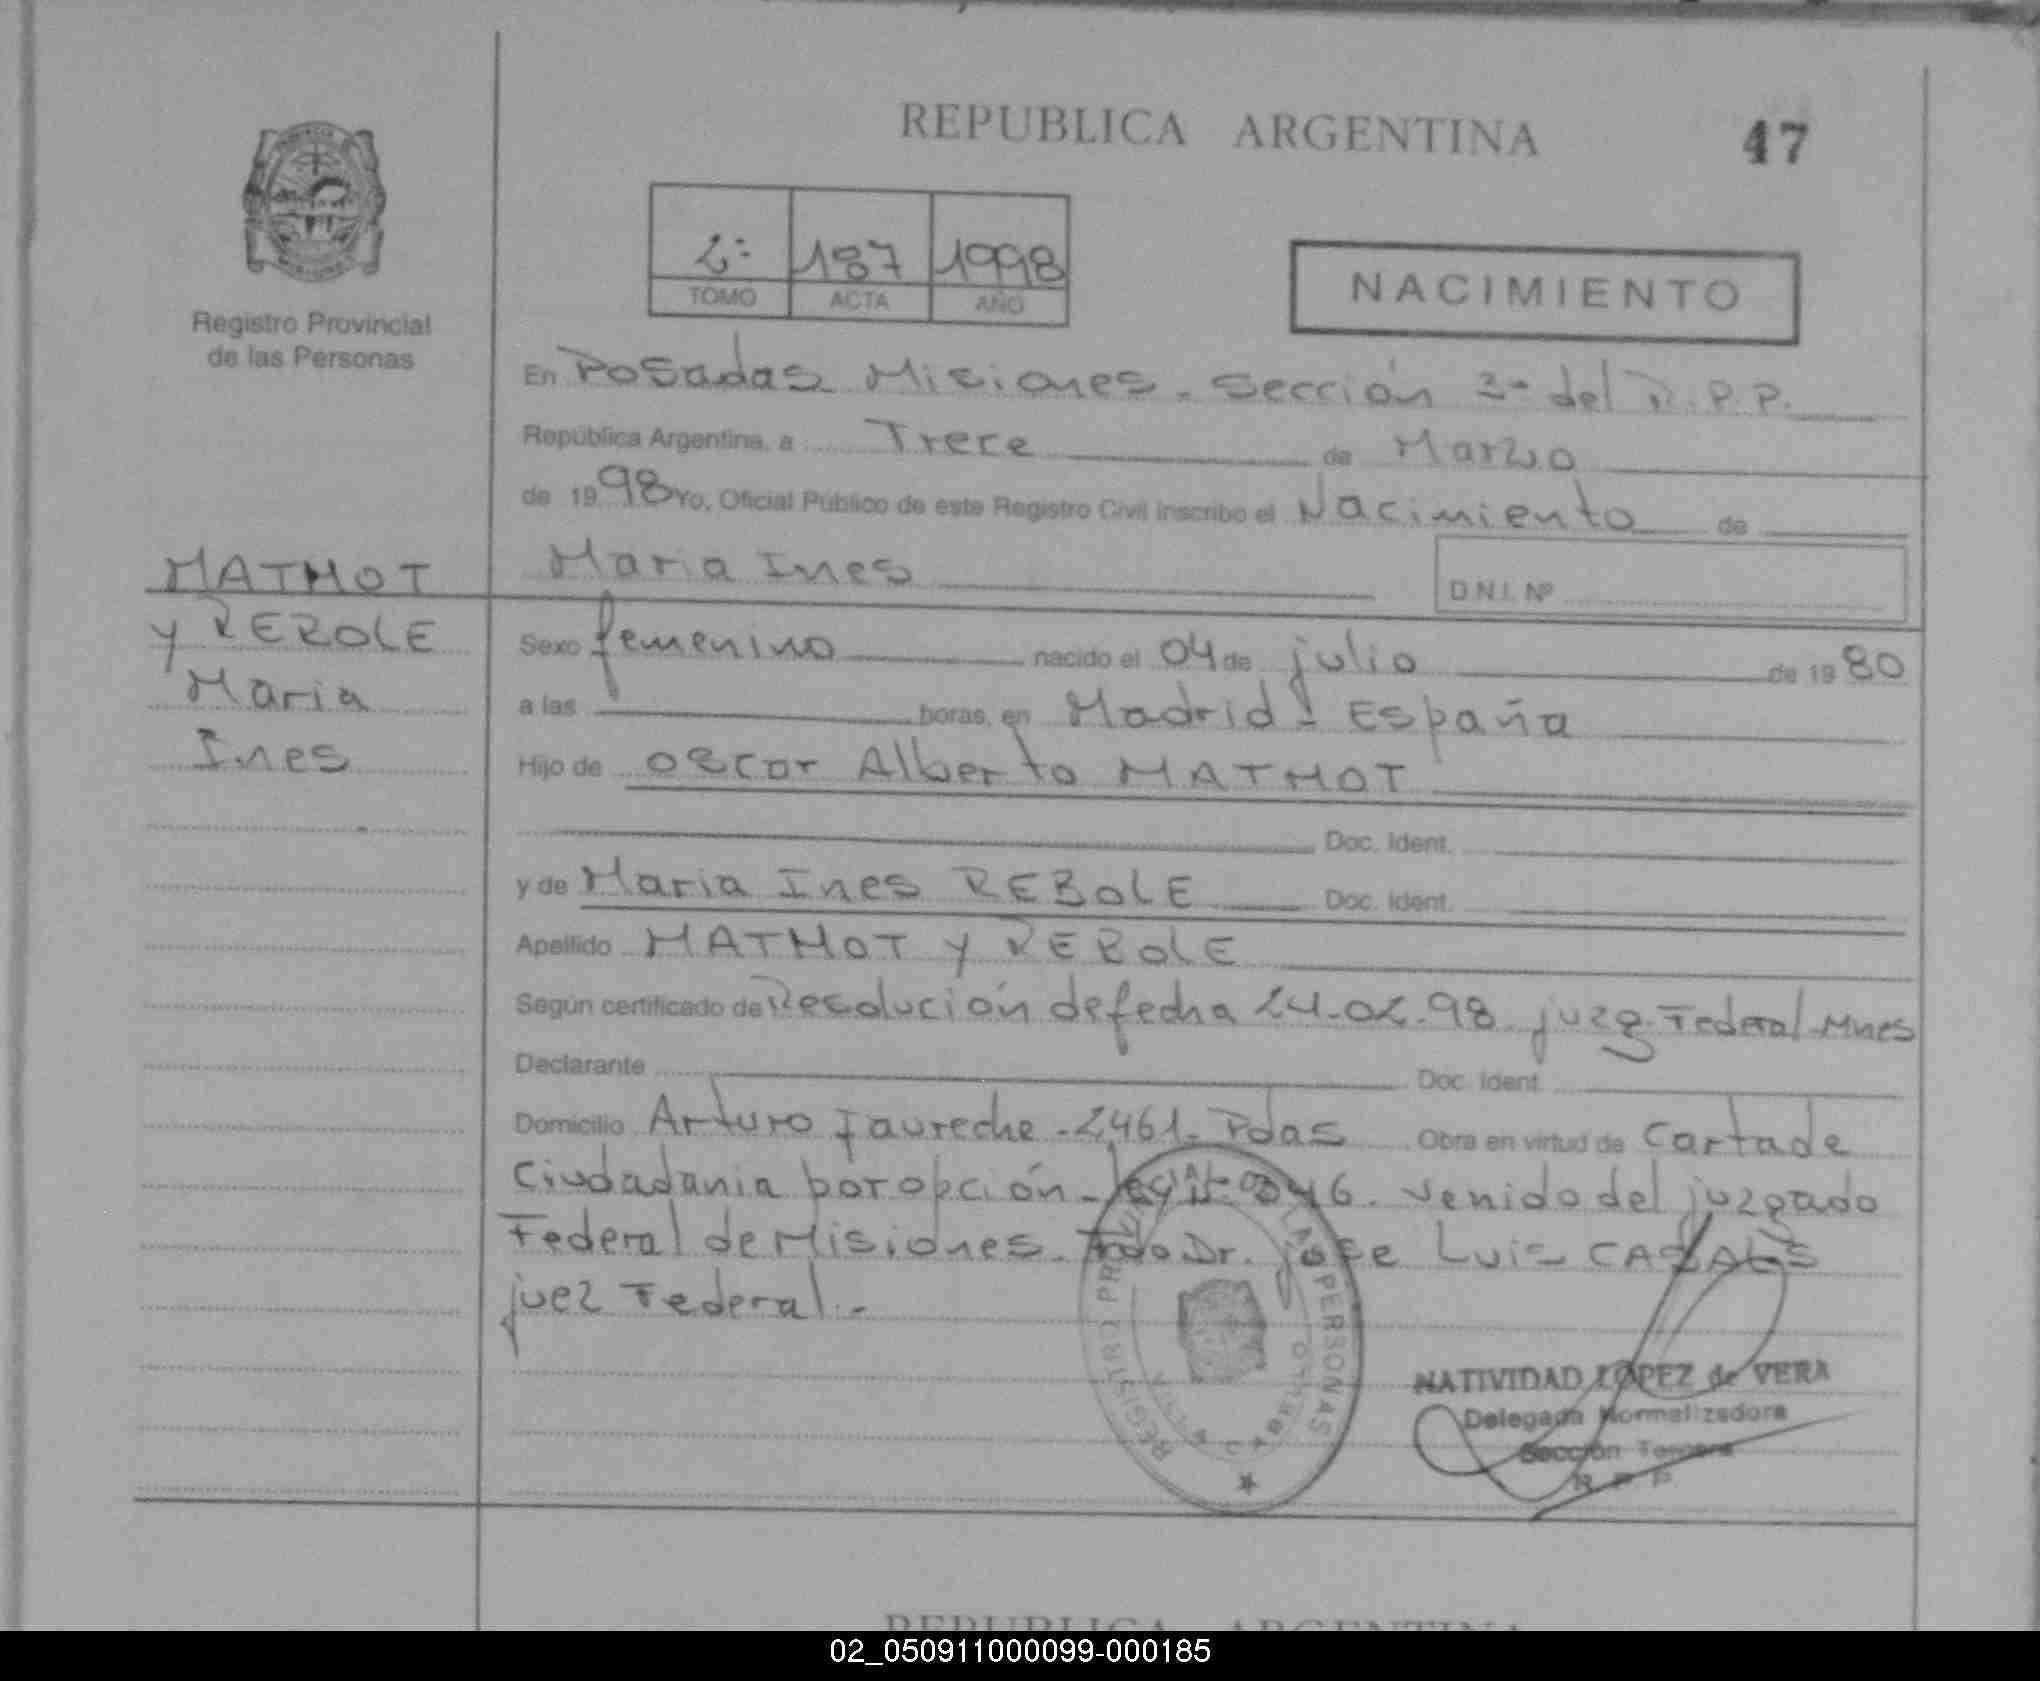 REPUBLICA ARGENTINA
47
2º 187 1998
TOMO ACTA AÑO
NACIMIENTO
Registro Provincial
de las Personas
En Posadas Misiones. Sección 3ª del R.P.P.
República Argentina, a Trece de Marzo
de 1998 Yo, Oficial Público de este Registro Civil inscribo el Nacimiento de
Maria Ines D.N.I. Nº
MATMOT
y REBOLE
Maria
Ines
Sexo femenino nacido el 04 de julio de 1980
a las horas, en Madrid - España
Hijo de Oscar Alberto MATMOT
Doc. Ident.
y de Maria Ines REBOLE Doc. Ident.
Apellido MATMOT y REBOLE
Según certificado de Resolución de fecha 24-02-98 juzg. Federal Mnes
Declarante Doc. Ident.
Domicilio Arturo Jaureche - 2461 - Pdas Obra en virtud de Carta de
Ciudadania por opción - Nº 046. venido del juzgado
Federal de Misiones. Fdo Dr. jose Luis CASALS
juez Federal.-
REGISTRO PROVINCIAL LAS PERSONAS
NATIVIDAD LOPEZ de VERA
Delegada Normalizadora
Sección Tercera
R P P
REPUBLICA ARGENTINA
02_050911000099-000185